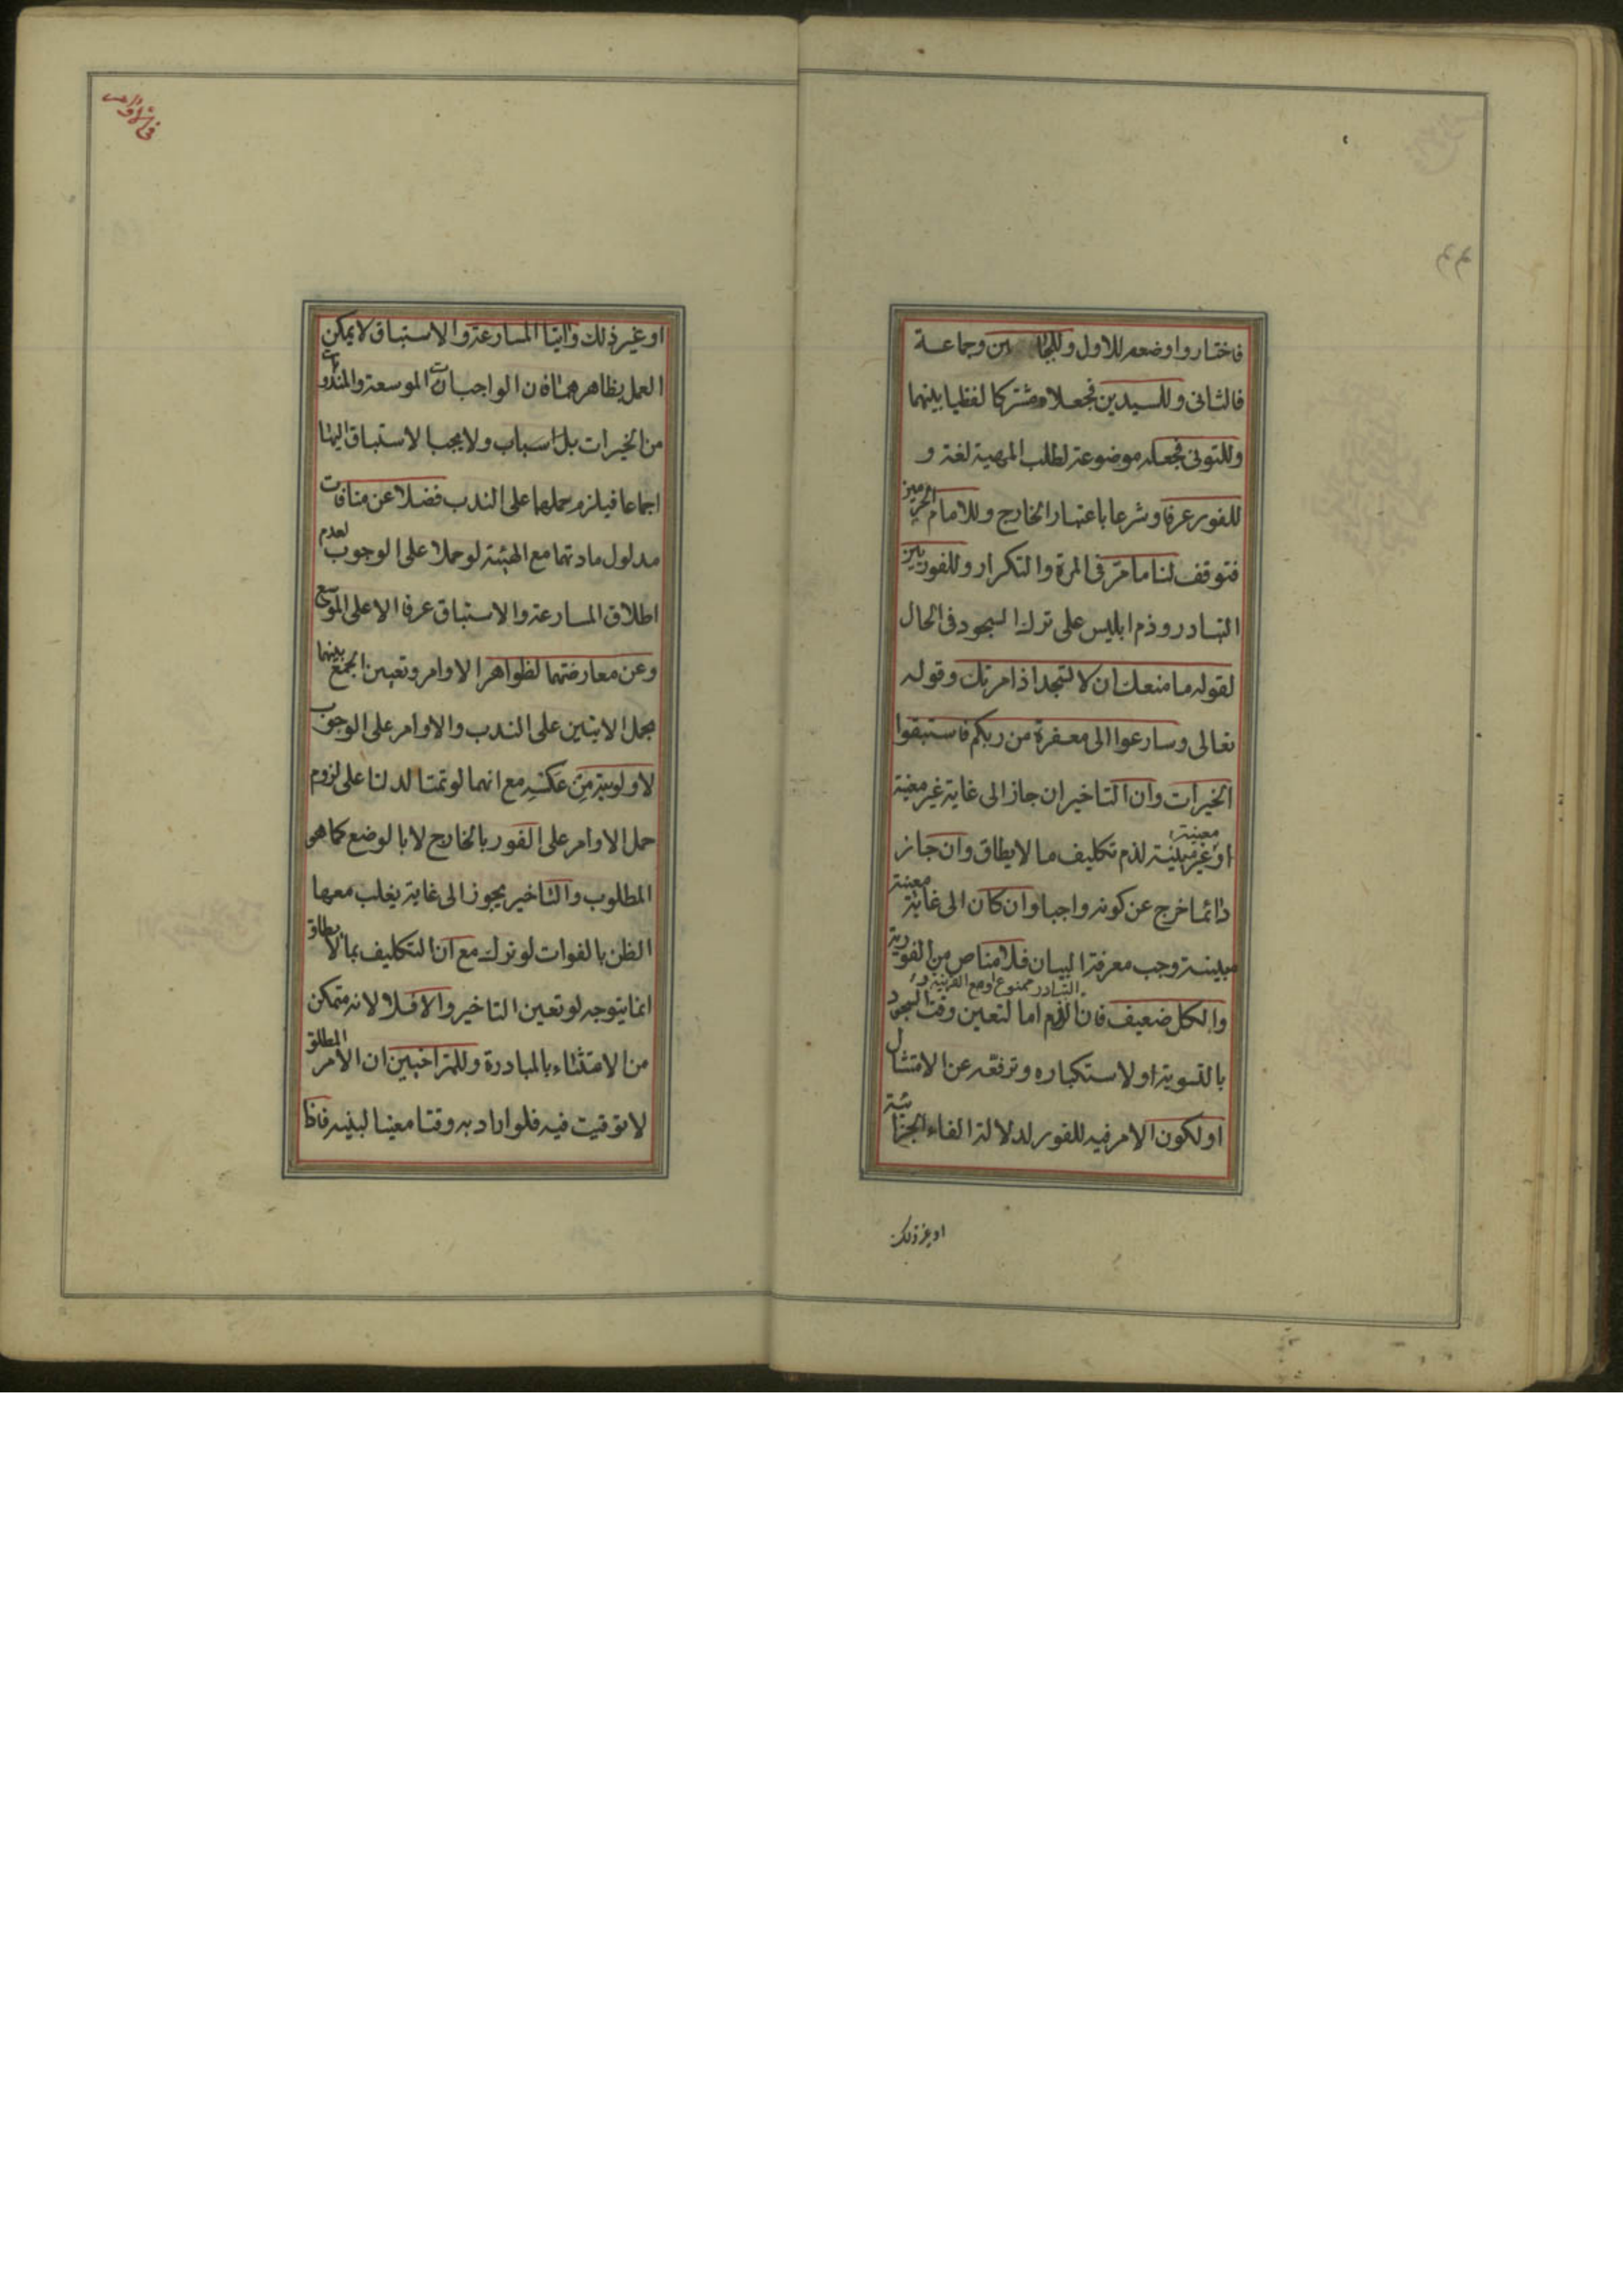 فاختاروا وضعه للاول وللجبا ين وجماعة
فالثانى وللسيدين فجعلاه مشتركا لفظيا بينهما
وللتونى فجعله موضوعة لطلب المهية لغة و
للفور عرفا وشرعا باعتبار الخارج وللامام الحرمين
فتوقف لنا ما مرّ فى المرة والتكرار وللفوريين
التبادر وذم ابليس على ترك السجود فى الحال
لقوله ما منعك ان لا تسجد اذ امرتك وقوله
تعالى وسارعوا الى مغفرة من ربكم فاستبقوا
الخيرات وان التاخير ان جاز الى غاية غير معينة
معينة
او غير مبينة لذم تكليف ما لا يطاق وان جاز
دائما خرج عن كونه واجبا وان كان الى غاية معينة
مبينة وجب معرفة البيان فلا مناص من الفورية
التبادر ممنوع او مع القرينة و
والكل ضعيف فان الذم اما لتعين وقت السجود
بالتسوية او لاستكباره وترفعه عن الامتثال
او لكون الامر فيه للفور لدلالة الفاء الجزائية
او غير ذلك
او غير ذلك وآيتا المسارعة والاستباق لا يمكن
العمل بظاهرهما فان الواجبات الموسعة والمندوبات
من الخيرات بل اسباب ولا يجب الاستباق اليها
اجماعا فيلزم حملها على الندب فضلا عن منافات
مدلول مادتهما مع الهيئة لو حملا على الوجوب لعدم
اطلاق المسارعة والاستباق عرفا الا على الموسع
وعن معارضتهما لظواهر الاوامر وتعيين الجمع بينهما
بحمل الايتين على الندب والاوامر على الوجوب
لاولوية من عكسه مع انهما لو تمتا لدلتا على لزوم
حمل الاوامر على الفور بالخارج لا بالوضع كما هو
المطلوب والتاخير يجوز الى غاية يغلب معها
الظن بالفوات لو ترك مع ان التكليف بما لا يطاق
انما يتوجه لو تعين التاخير والا فلا لانه متمكن
من الامتثاء بالمبادرة وللتراخيين ان الامر المطلق
لا توقيت فيه فلو اراد به وقتا معينا لبينه فاذا